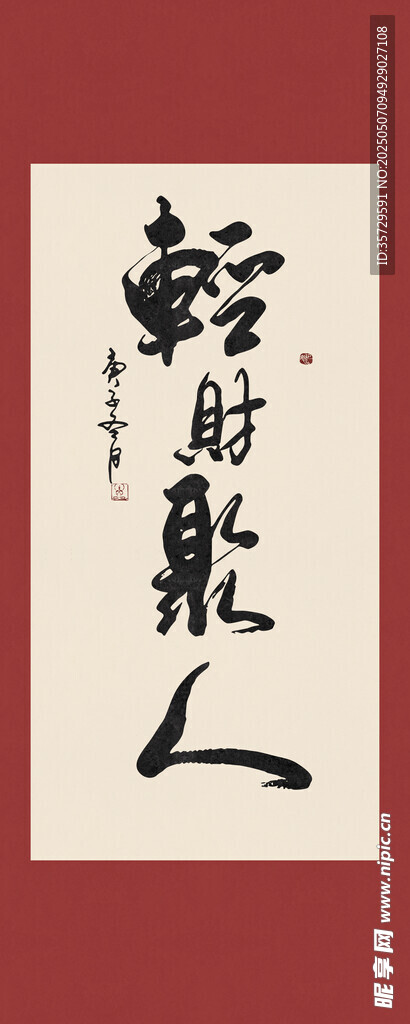 輕財聚人
庚子冬月
ID:35729591 NO:20250507094929027108
昵享网 www.nipic.cn